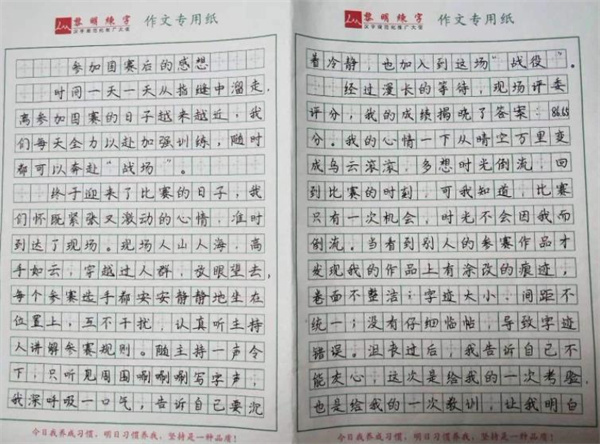 黎明练字
汉字规范化推广大使
作文专用纸
参加国赛后的感想
时间一天一天从指缝中溜走,
离参加国赛的日子越来越近,我
们每天全力以赴加强训练,随时
都可以奔赴“战场”。
终于迎来了比赛的日子,我
们怀既紧张又激动的心情,准时
到达了现场。现场人山人海,高
手如云,穿越过人群,放眼望去,
每个参赛选手都安安静静地坐在
位置上,互不干扰,认真听主持
人讲解参赛规则。随主持一声令
下,只听见周围唰唰唰写字声,
我深呼吸一口气,告诉自己要沉
今日我养成习惯,明日习惯养我,坚持是一种品质!
黎明练字
汉字规范化推广大使
作文专用纸
着冷静,也加入到这场“战役”。
经过漫长的等待,现场评委
评分,我的成绩揭晓了答案:86.65
分。我的心情一下从晴空万里变
成乌云滚滚,多想时光倒流,回
到比赛的时刻,可我知道,比赛
只有一次机会,时光不会因我而
倒流。当看到别人的参赛作品才
发现我的作品上有涂改的痕迹,
卷面不整洁;字迹大小、间距不
统一;没有仔细临帖,导致字迹
错误。沮丧过后,我告诉自己不
能灰心,这次是给我的一次考验,
也是给我的一次教训,让我明白
今日我养成习惯,明日习惯养我,坚持是一种品质!